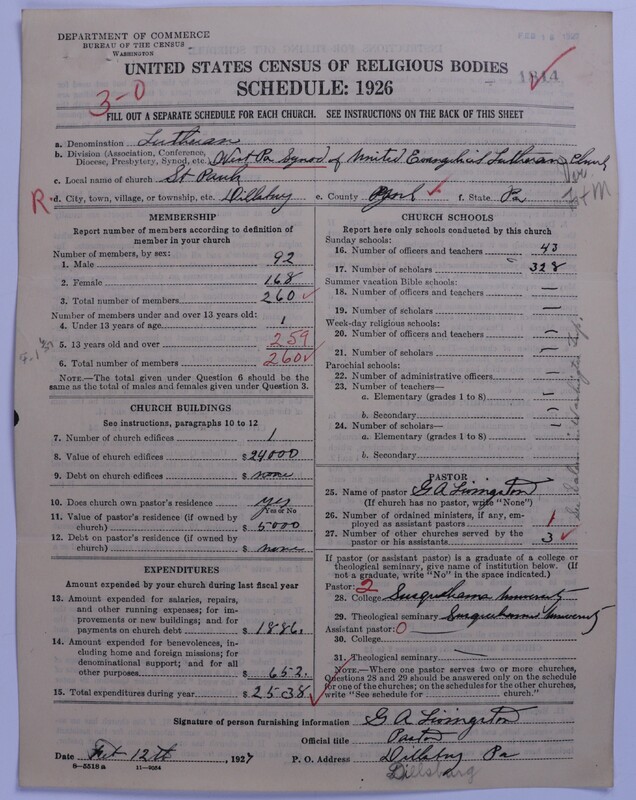 DEPARTMENT OF COMMERCE
BUREAU OF THE CENSUS
WASHINGTON
UNITED STATES CENSUS OF RELIGIOUS BODIES
1814
SCHEDULE: 1926
3-0
FILL OUT A SEPARATE SCHEDULE FOR EACH CHURCH. SEE INSTRUCTIONS ON THE BACK OF THIS SHEET
a. Denomination Lutheran
b. Division (Association, Conference, Diocese, Presbytery, Synod, etc.) West Pa Synod of United Evangelical Lutheran Church
c. Local name of church St Pauls
R d. City, town, village, or township, etc. Dillsburg e. County York f. State Pa
MEMBERSHIP
Report number of members according to definition of
member in your church
Number of members, by sex:
1. Male 92
2. Female 168
3. Total number of members 260
Number of members under and over 13 years old:
4. Under 13 years of age 1
5. 13 years old and over 259
6. Total number of members 260
NOTE.—The total given under Question 6 should be
the same as the total of males and females given under Question 3.
CHURCH BUILDINGS
See instructions, paragraphs 10 to 12
7. Number of church edifices 1
8. Value of church edifices $ 24000
9. Debt on church edifices $ none
10. Does church own pastor's residence yes
Yes or No
11. Value of pastor's residence (if owned by
church) $ 5000
12. Debt on pastor's residence (if owned by
church) $ none
EXPENDITURES
Amount expended by your church during last fiscal year
13. Amount expended for salaries, repairs,
and other running expenses; for im-
provements or new buildings; and for
payments on church debt $ 1886.
14. Amount expended for benevolences, in-
cluding home and foreign missions; for
denominational support; and for all
other purposes $ 652.
15. Total expenditures during year $ 2538
CHURCH SCHOOLS
Report here only schools conducted by this church
Sunday schools:
16. Number of officers and teachers 43
17. Number of scholars 328
Summer vacation Bible schools:
18. Number of officers and teachers —
19. Number of scholars —
Week-day religious schools:
20. Number of officers and teachers —
21. Number of scholars —
Parochial schools:
22. Number of administrative officers —
23. Number of teachers—
a. Elementary (grades 1 to 8) —
b. Secondary —
24. Number of scholars—
a. Elementary (grades 1 to 8) —
b. Secondary
PASTOR
25. Name of pastor G A Livingston
(If church has no pastor, write "None")
26. Number of ordained ministers, if any, em-
ployed as assistant pastors 1
27. Number of other churches served by the
pastor or his assistants 3
If pastor (or assistant pastor) is a graduate of a college or
theological seminary, give name of institution below. (If
not a graduate, write "No" in the space indicated.)
Pastor: 2
28. College Susquehanna University
29. Theological seminary Susquehanna University
Assistant pastor: 0
30. College
31. Theological seminary —
NOTE.—Where one pastor serves two or more churches,
Questions 28 and 29 should be answered only on the schedule
for one of the churches; on the schedules for the other churches,
write "See schedule for church."
Signature of person furnishing information G A Livingston
Official title Pastor
Date Feb 12th, 1927 P. O. Address Dillsburg Pa
8-5518a 11-9034
Dillsburg